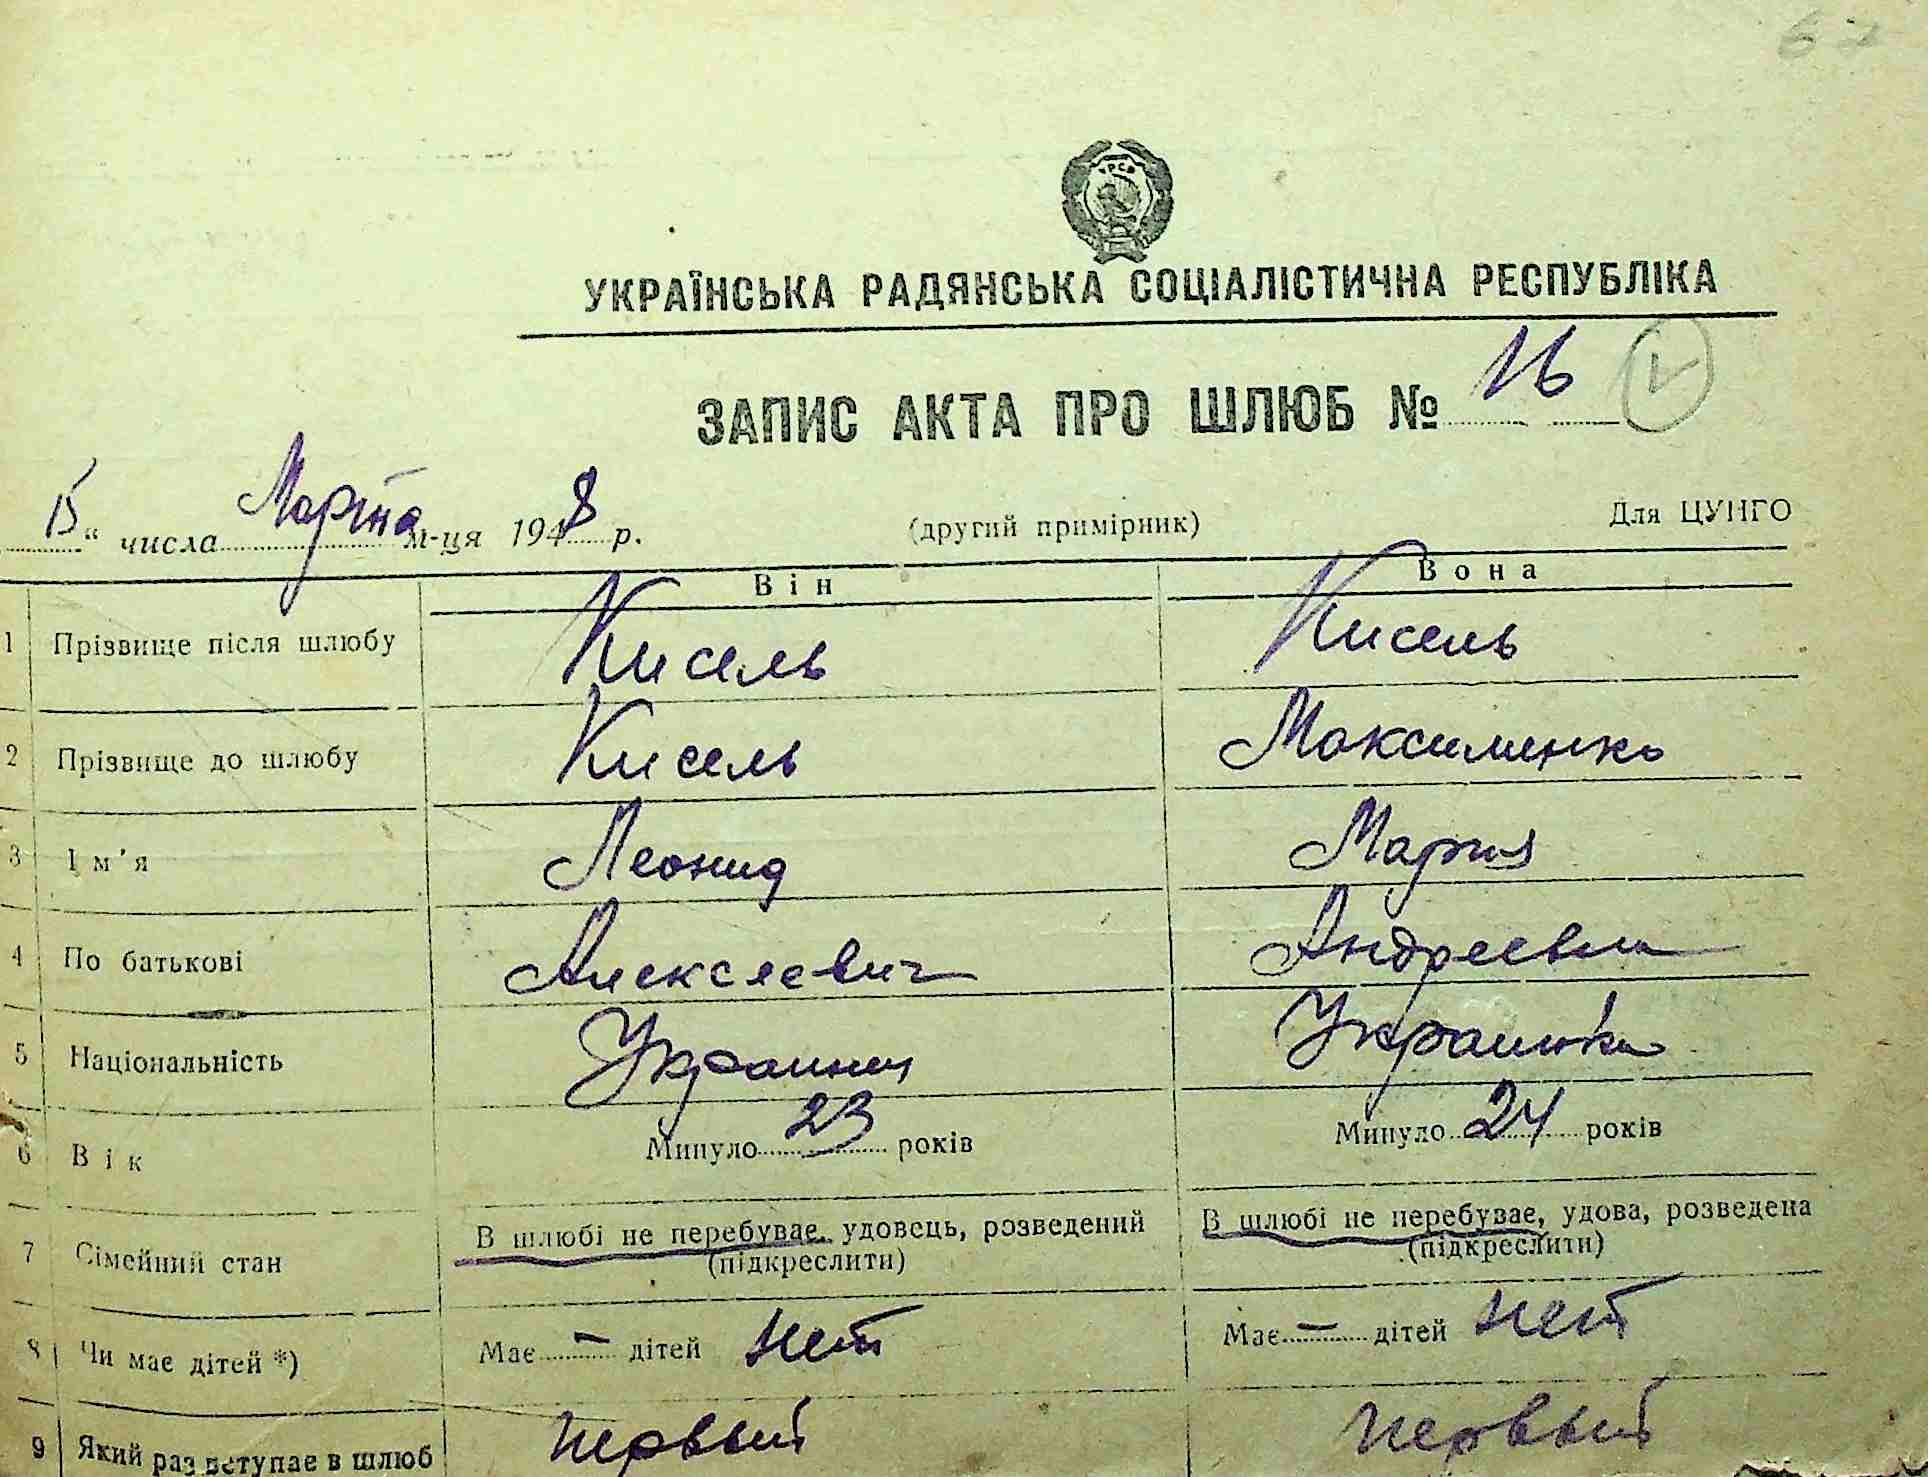 62
УКРАЇНСЬКА РАДЯНСЬКА СОЦІАЛІСТИЧНА РЕСПУБЛІКА
ЗАПИС АКТА ПРО ШЛЮБ № 16
15 " числа Марта м-ця 1948 р. (другий примірник) Для ЦУНГО
Він Вона
1 Прізвище після шлюбу Кисель Кисель
2 Прізвище до шлюбу Кисель Максименко
3 Ім'я Леонид Мария
4 По батькові Алексеевич Андреевна
5 Національність Украинец Украинка
6 Вік Минуло 23 років Минуло 24 років
7 Сімейний стан В шлюбі не перебуває, удовець, розведений В шлюбі не перебуває, удова, розведена
(підкреслити) (підкреслити)
8 Чи має дітей *) Має — дітей нет Має — дітей нет
9 Який раз вступає в шлюб первый первый